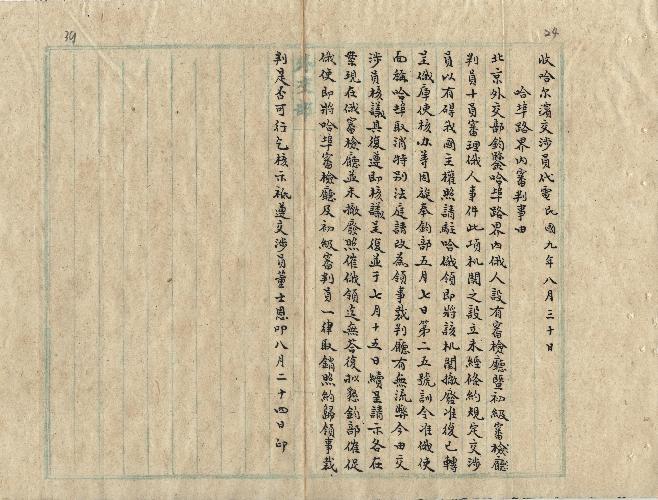 24
39
收哈尔濱交涉員代電民國九年八月三十日
哈埠路界內審判事由
北京外交部鈞鑒哈埠路界內俄人設有審檢廳暨初級審檢廳
判員十員審理俄人事件此項机関之設立未經條約規定交涉
員以有碍我國主權照請駐哈俄領即將該机関撤廢准復已轉
呈俄庫使核办等因旋奉鈞部五月七日第二五號訓令准俄使
面稱哈埠取消特別法庭請改為領事裁判廳有無流弊令由交
涉員核議具復遵即核議呈復並于七月十五日續呈請示各在
案現在俄審檢廳並未撤廢照催俄領迄無答復拟懇鈞部催促
俄使即將哈埠審檢廳及初級審判員一律取銷照約歸領事裁
判是否可行乞核示祗遵交涉員董士恩叩八月二十四日印
外交部